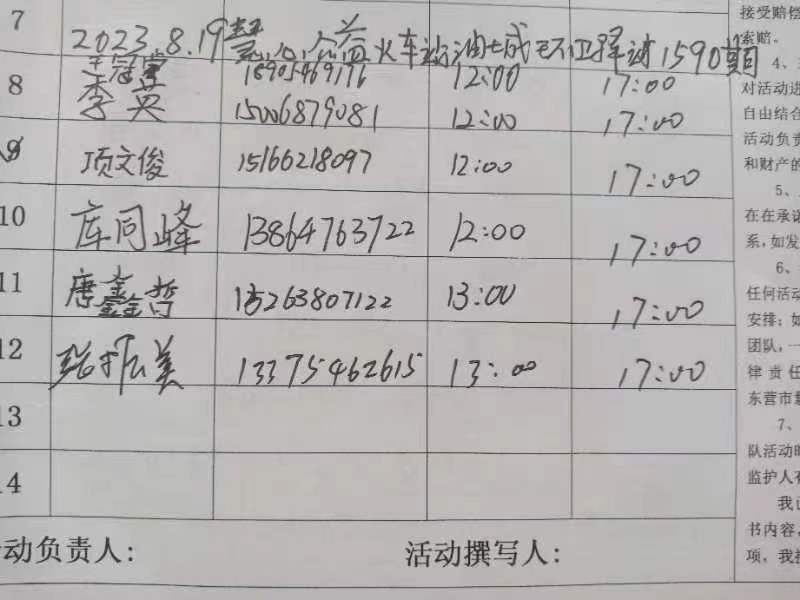 7
2023.8.19慧心公益火车站油城环卫驿站1590期
8 王冠堂 18905469176 12:00 17:00
李英 15006879081 12:00 17:00
9 项文俊 15166218097 12:00 17:00
10 库同峰 13864763722 12:00 17:00
11 唐鑫哲 15263807122 13:00 17:00
12 张振美 13375462615 13:00 17:00
13
14
动负责人: 活动撰写人:
接受赔偿
索赔。
4、
对活动进
自由结合
活动负责
和财产的
5、
在在承诺
系,如发
6、
任何活动
安排;如
团队,一
律责任
东营市慧
7、
队活动时
监护人有
我已
书内容,
项,我